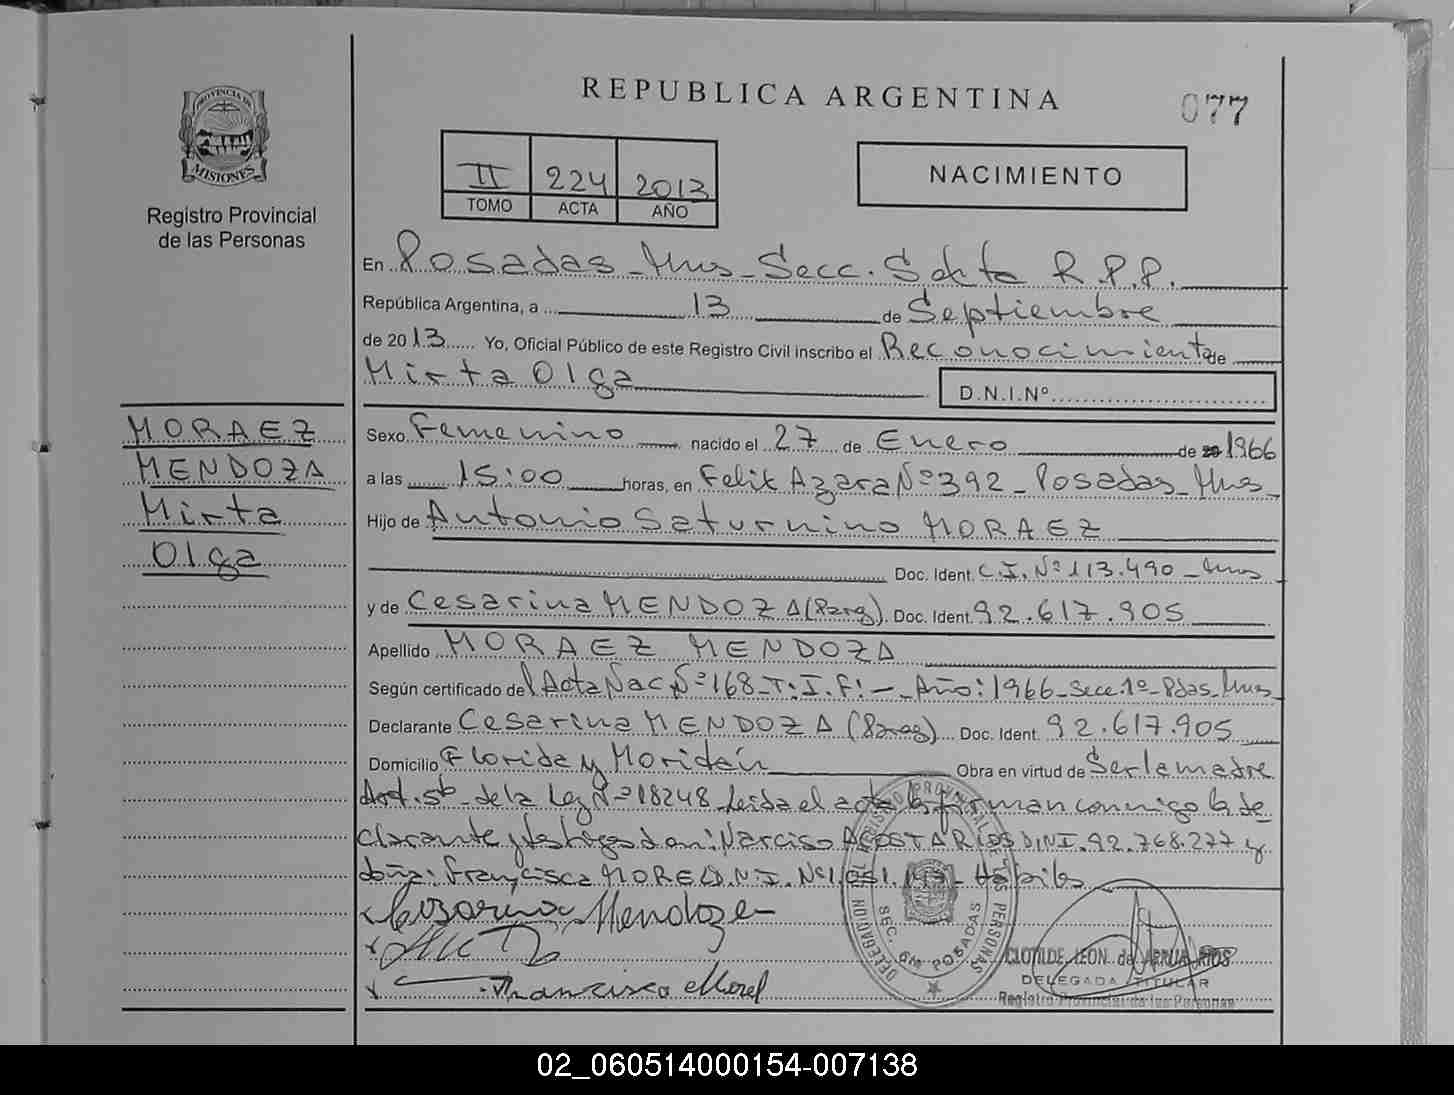 REPUBLICA ARGENTINA
077
PROVINCIA DE
MISIONES
Registro Provincial
de las Personas
II 224 2013
TOMO ACTA AÑO
NACIMIENTO
En Posadas - Mns - Secc. Sexta R.P.P.
República Argentina, a 13 de Septiembre
de 2013 Yo, Oficial Público de este Registro Civil inscribo el Reconocimiento de
Mirta Olga
D.N.I.Nº
MORAEZ
MENDOZA
Mirta
Olga
Sexo Femenino nacido el 27 de Enero de 20 1966
a las 15:00 horas, en Felix Azara Nº 392 - Posadas - Mns -
Hijo de Antonio Saturnino MORAEZ
Doc. Ident. C.I. Nº 113.490 - Mns
y de Cesarina MENDOZA (Parag). Doc. Ident. 92.617.905
Apellido MORAEZ MENDOZA
Según certificado del Acta Nac Nº 168 - T: I. F: - Año: 1966 - Secc. 1º - Pdas - Mns
Declarante Cesarina MENDOZA (Parag) Doc. Ident. 92.617.905
Domicilio Florida y Obra en virtud de Ser la madre
Art. 5º de la Ley Nº 18248 leida el acta la firman conmigo la de
clarante y testigos don: Narciso ACOSTA RIOS D.N.I. 92.768.277 y
doña: Francisca MOREL D.N.I. Nº Hábiles
Cesarina Mendoza
Francisca Morel
DELEGACION REGISTRO PROVINCIAL DE LAS PERSONAS
SEC. 6ta POSADAS
CLOTILDE LEON de RIOS
DELEGADA TITULAR
Registro Provincial de las Personas
02_060514000154-007138